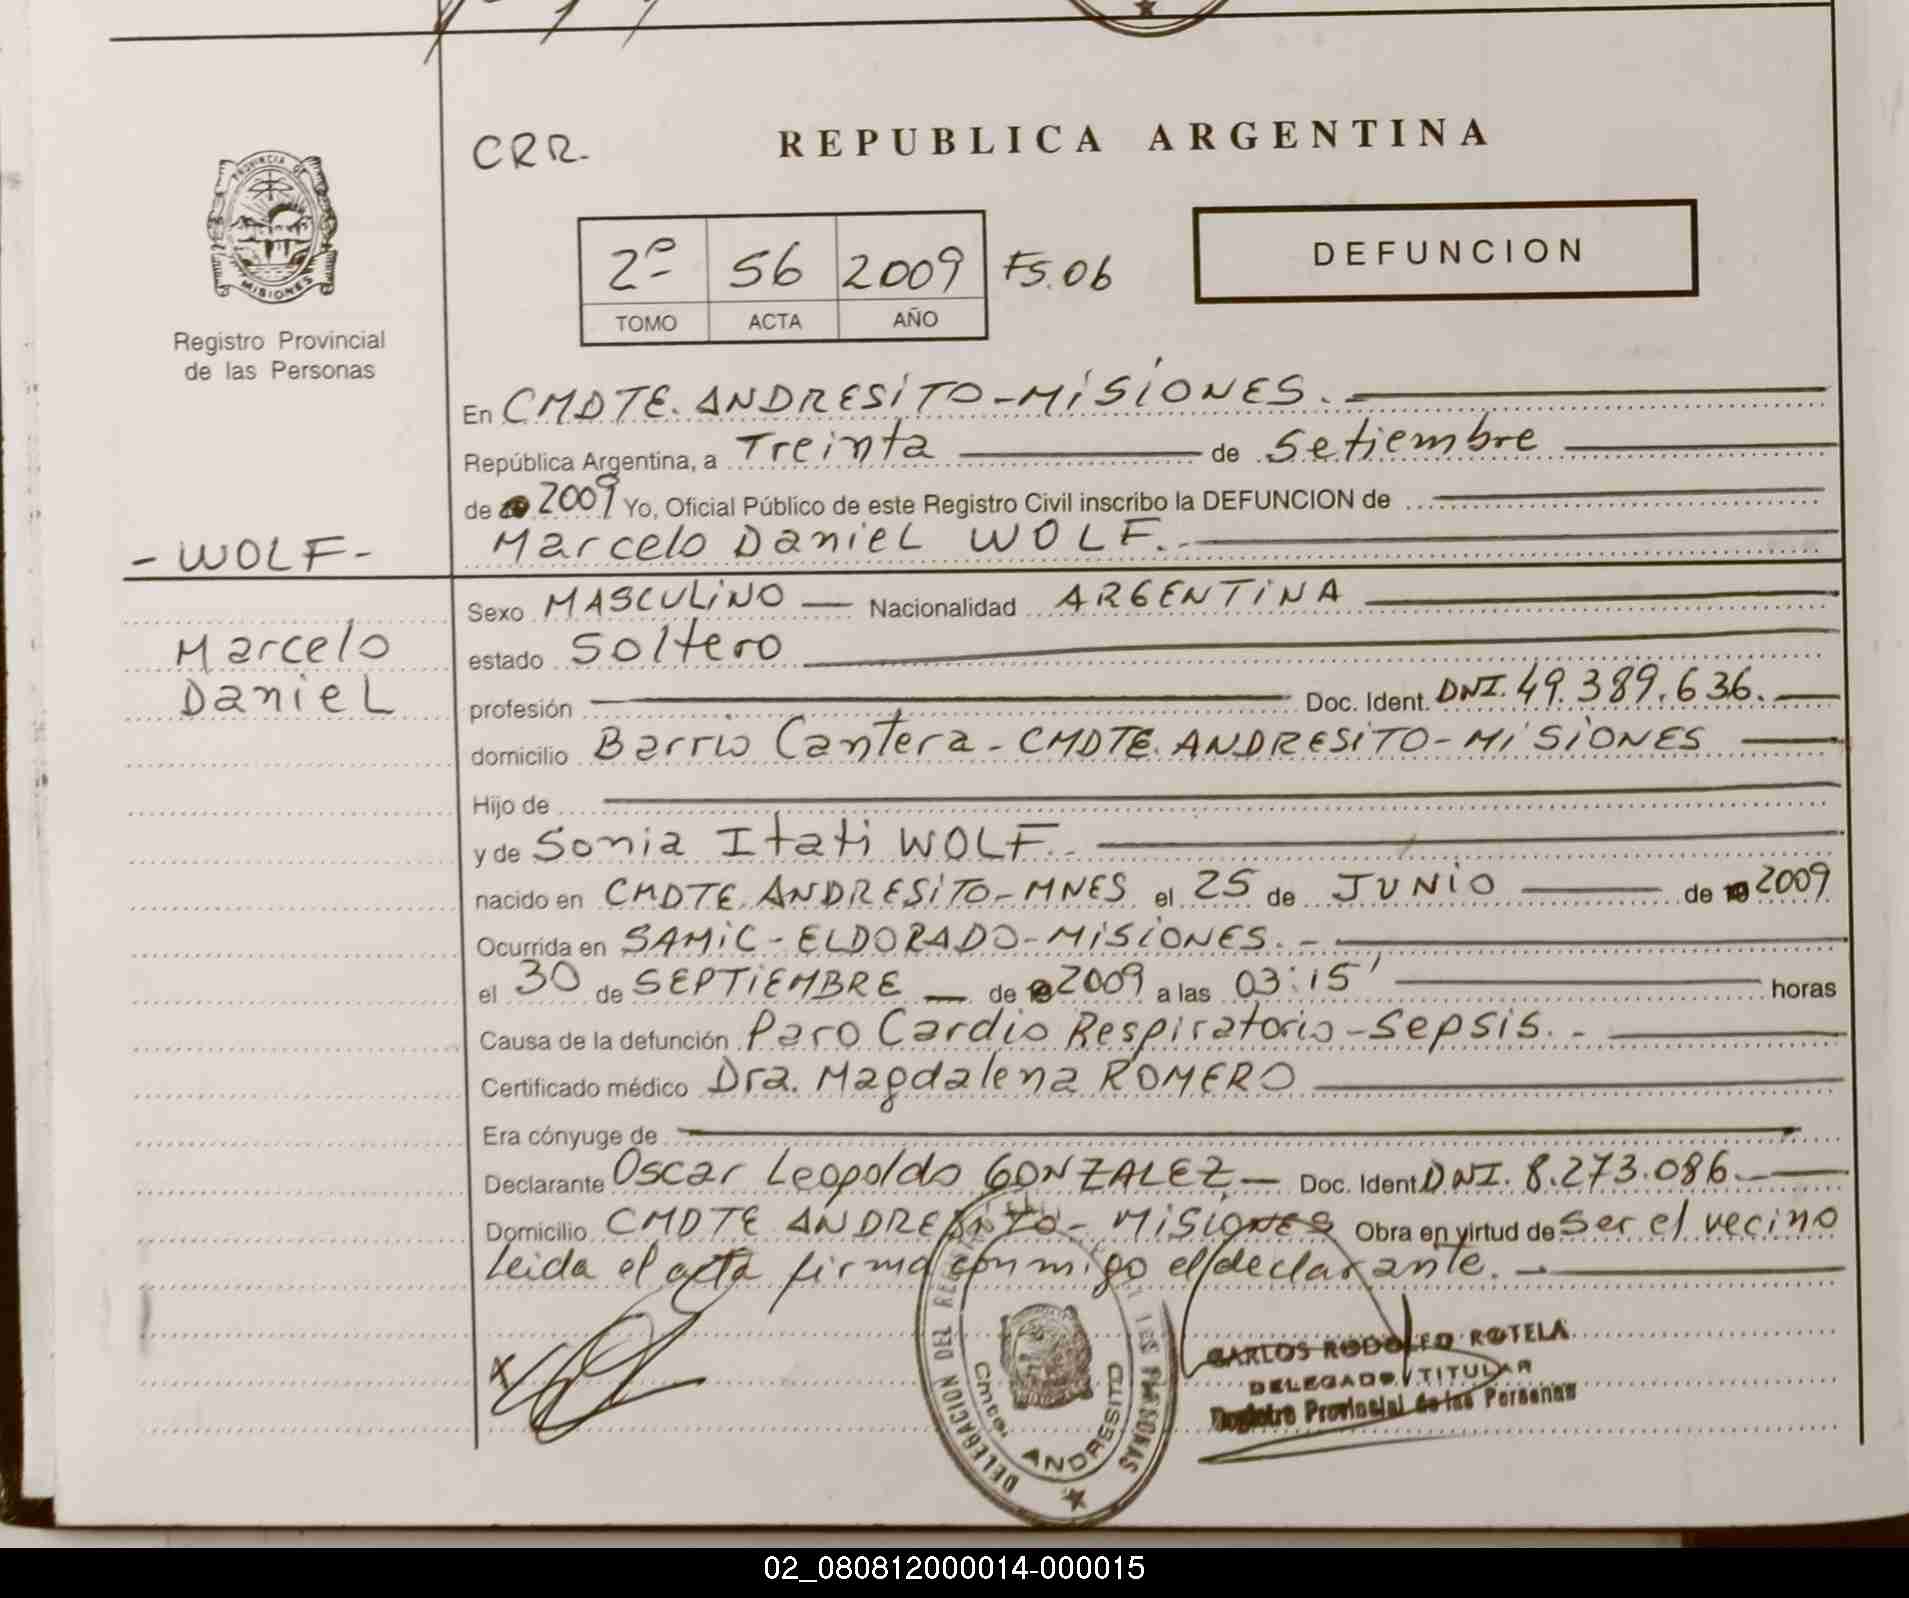 CRR.
REPUBLICA ARGENTINA
PROVINCIA DE
MISIONES
Registro Provincial
de las Personas
2º 56 2009 Fs. 06
TOMO ACTA AÑO
DEFUNCION
En CMDTE. ANDRESITO - MISIONES.
República Argentina, a Treinta de Setiembre
de 2009 Yo, Oficial Público de este Registro Civil inscribo la DEFUNCION de
- WOLF - Marcelo Daniel WOLF.
Sexo MASCULINO Nacionalidad ARGENTINA
Marcelo estado Soltero
Daniel profesión Doc. Ident. DNI. 49.389.636.
domicilio Barrio Cantera - CMDTE. ANDRESITO - MISIONES
Hijo de
y de Sonia Itati WOLF.
nacido en CMDTE. ANDRESITO - MNES el 25 de JUNIO de 2009
Ocurrida en SAMIC - ELDORADO - MISIONES.
el 30 de SEPTIEMBRE de 2009 a las 03:15' horas
Causa de la defunción Paro Cardio Respiratorio - Sepsis.
Certificado médico Dra. Magdalena ROMERO
Era cónyuge de
Declarante Oscar Leopoldo GONZALEZ Doc. Ident. DNI. 8.273.086.
Domicilio CMDTE ANDRESITO - MISIONES Obra en virtud de ser el vecino
leida el acta firma conmigo el declarante.
DELEGACION DEL REGISTRO DE LAS PERSONAS
Cmte. ANDRESITO
CARLOS RODOLFO ROTELA
DELEGADO TITULAR
Registro Provincial de las Personas
02_080812000014-000015